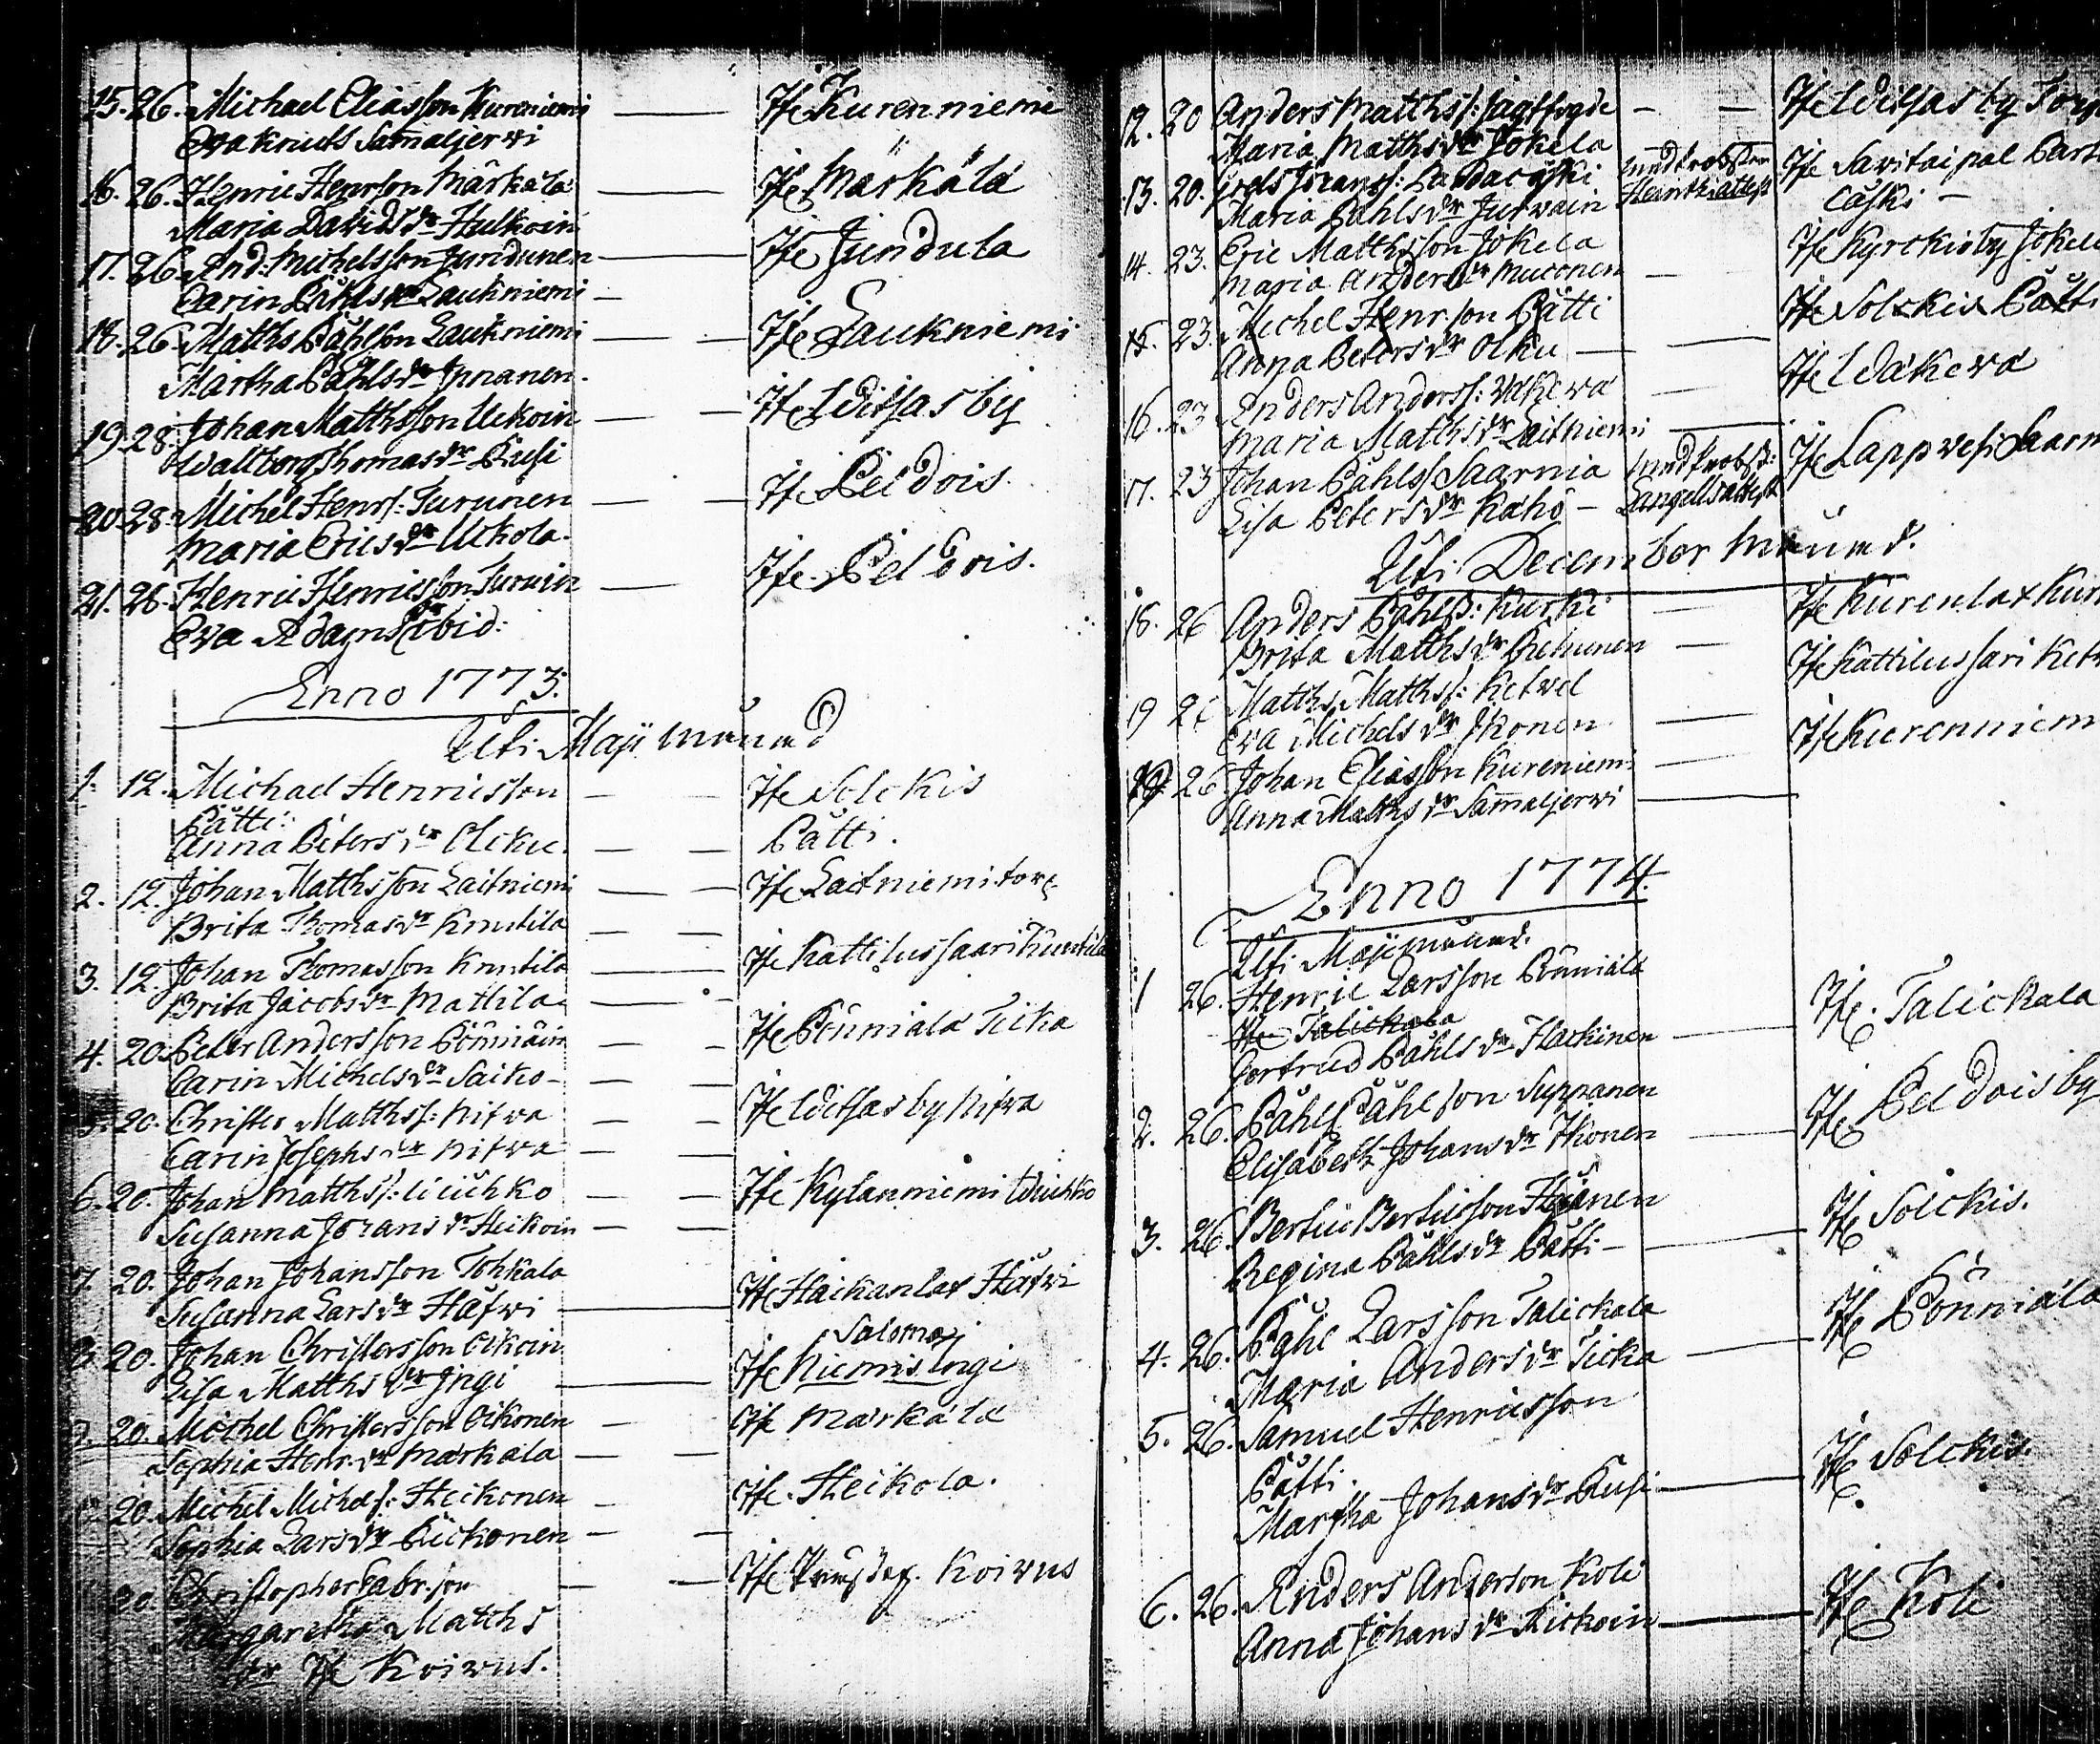 15. 26. Michael Eliasson Kureniemi — Ifr Kurenniemi
Eva Knuts Sam̄aljerwi
16. 26. Henric Henrsson Märkälä — Ifr Märkälä
Maria Davids dr Hulkoin
17. 26. And: Michelsson Jundunen — Ifr Jundula
Carin Påhls dr Laukniemi —
18. 26. Matths Påhlson Laukniemi — — Ifr Laukniemi
Martha Påhls dr Innanen.
19. 28. Johan Matthsson Uckoin — — Ifr Wilfas by
Wallborg Thomas dr Pusi
20. 28. Michel Henrs: Turunen — — Ifr Peldois.
Maria Erics dr Uckola.
21. 28. Henric Henricsson Turuin — Ifr Peldois.
Eva Adams dr ibid:
Anno 1773.
Uti Maji månad
1. 12. Michael Henricsson — Ifr Solckis
Pätti: Pätti.
Anna Peters dr Olcku. — —
2. 12. Johan Matthsson Laitniemi — — Ifr Laitniemi torp
Brita Thomas dr Kruutila — —
3. 12. Johan Thomasson Kruutila — Ifr Kattilussaari Kuutila
Brita Jacobs dr Mattila —
4. 20. Peter Andersson Pönniäin — — Ifr Pönniälä Ticka
Carin Michels dr Saiko — — —
5. 20. Christer Matthss: Nifwa — — Ifr Wilfas by Nifwa
Carin Josephs dr Nifwa — —
6. 20. Johan Matthss: — — Ifr Kylanniemi
Susanna Jörans dr Heikoin — —
7. 20. Johan Johansson Tohkala
Susanna Lars dr Häfwi — Ifr Haikanlax Häfwi
8. 20. Johan Christersson Olkoin Salomoj
Lisa Matths dr Ingi — Ifr Niemis Ingi
9. 20. Michel Christersson Oikonen — Ifr Märkälä
Sophia Henr. dr Märkälä — —
20. Michel Michels: Heikonen — Ifr Heikola.
Sophia Lars dr Rickonen — —
20. Christopher Gabr.son — — Ifr Koivus
Margaretha Matths
dr Ifr Koivus.
12. 20 Anders Matthss: Jagtfogde — — Ifr Wilfas by Torp
Maria Matths dr Jokela
13. 20. Joels Jöranss: Ifr Savitaipal
Maria Påhls dr Jurwain
14. 23. Eric Matthsson Jokela Ifr Kyrckioby Jokela
Maria Anders dr Mutonen —
15. 23. Michel Henr.son Pätti Ifr Solckis Pätti
Anna Peters dr Olku — —
16. 23 Anders Anderss: Wäkewä — Ifr Wäkewä
Maria Matths dr Laitniemi —
17. 23 Johan Påhlss Saarnia Ifr Lappwesi Saarn
Lisa Peters dr Kaho —
Uti December månad.
18. 26 Anders Påhlss: Kurki — Ifr Kurenlax Kur
Brita Matths dr Rehunen —
19 26 Matths Matthss: Ketwel — Ifr Kattilussari Ket
Eva Michels dr Ikonen —
26. Johan Eliasson Kureniemi — Ifr Kurenniem
Anna Matths dr Sam̄aljerwi —
Anno 1774.
Uti Maji månad.
1 26. Henric Larsson Pönniälä
Ifr Talickala Ifr. Talickala
Gertrud Påhls dr Hackinen —
2. 26. Påhl Påhlson Suppanen Ifr Peldois by
Elisabeth Johans dr Ikonen —
3. 26. Bertil Bertilsson Ifr Solckis.
Regina Påhls dr Pätti —
4. 26. Påhl Larsson Talickala Ifr Pönniälä
Maria Anders dr Ticka —
5. 26. Samuel Henricsson
Pätti. Ifr Solckis.
Martha Johans dr Pusi —
6. 26. Anders Anderson Koli Ifr Koli
Anna Johans dr Kickoin —